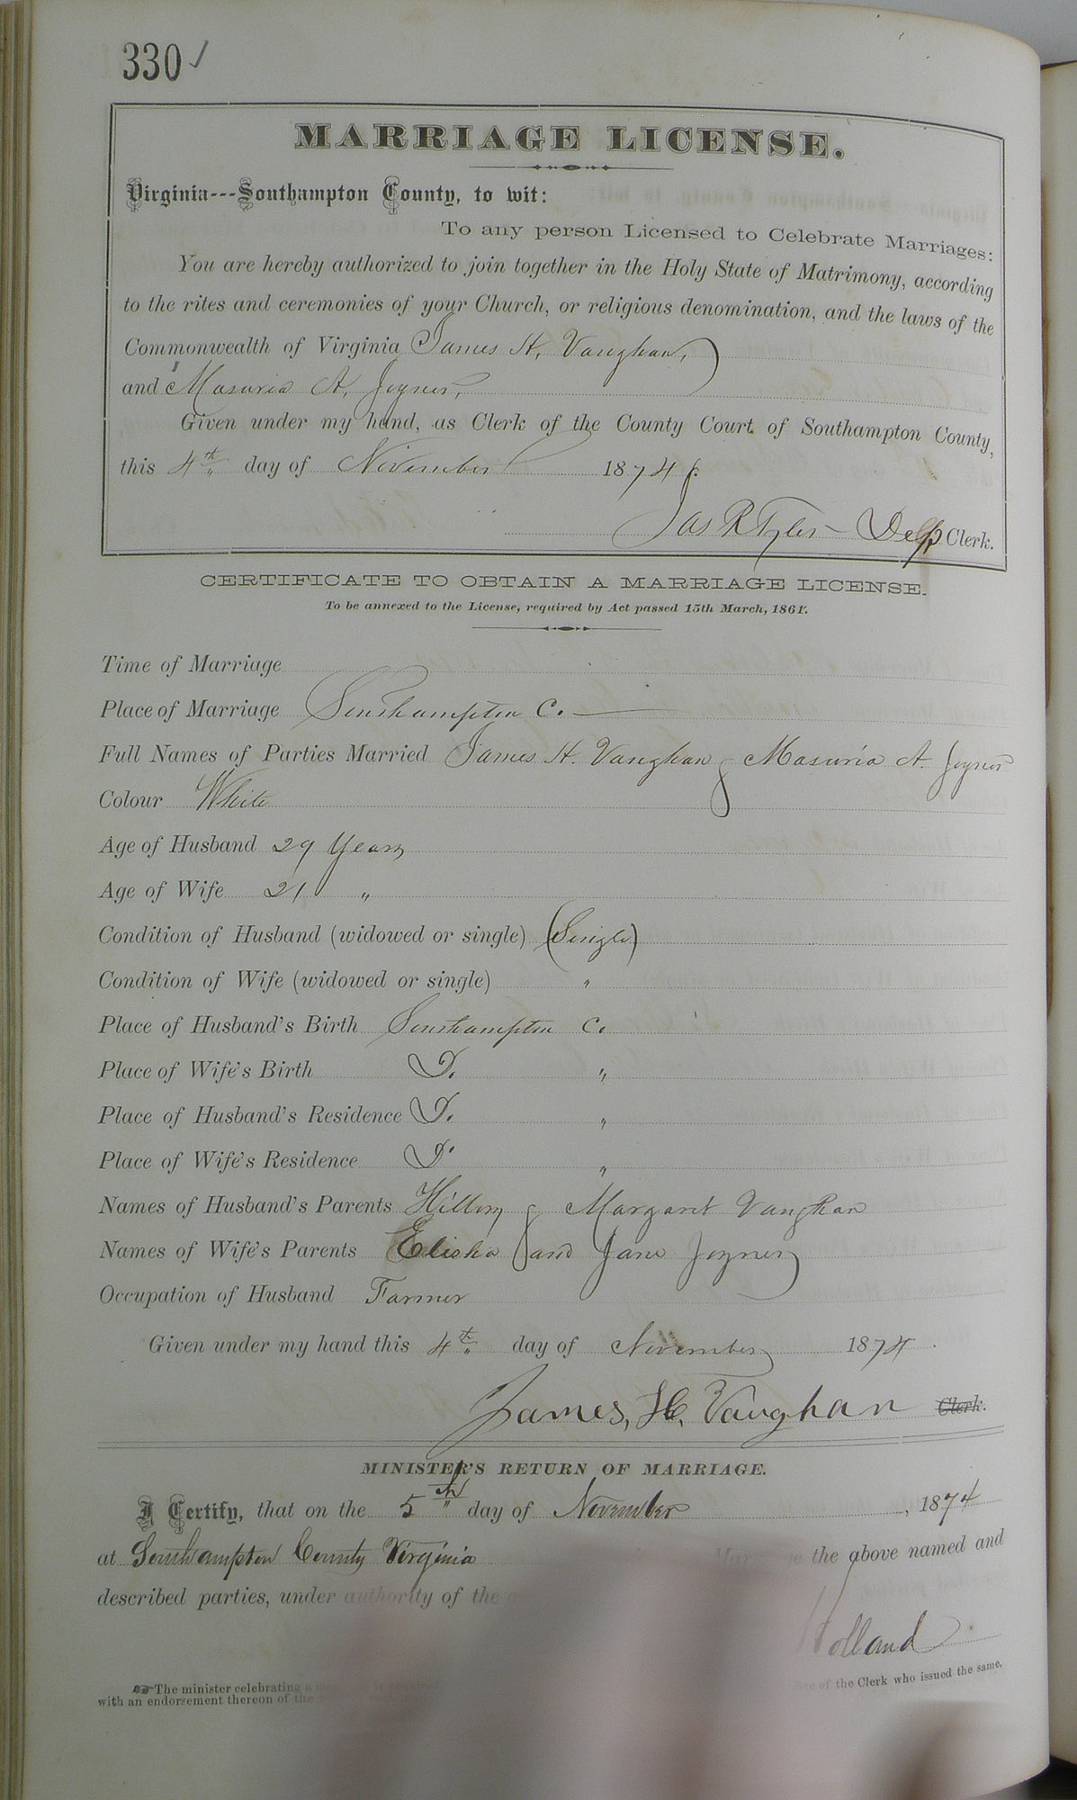 330 ✓
MARRIAGE LICENSE.
Virginia---Southampton County, to wit:
To any person Licensed to Celebrate Marriages:
You are hereby authorized to join together in the Holy State of Matrimony, according
to the rites and ceremonies of your Church, or religious denomination, and the laws of the
Commonwealth of Virginia James H. Vaughan,
and Masuria A. Joyner,
Given under my hand, as Clerk of the County Court of Southampton County,
this 4th day of November 1874.
Jas R Tyler - Dep Clerk.
CERTIFICATE TO OBTAIN A MARRIAGE LICENSE.
To be annexed to the License, required by Act passed 15th March, 1861.
Time of Marriage
Place of Marriage Southampton C.
Full Names of Parties Married James H. Vaughan & Masuria A. Joyner
Colour White
Age of Husband 29 Years
Age of Wife 21 "
Condition of Husband (widowed or single) (Single)
Condition of Wife (widowed or single) "
Place of Husband's Birth Southampton C.
Place of Wife's Birth D. "
Place of Husband's Residence D. "
Place of Wife's Residence D. "
Names of Husband's Parents Hillory & Margaret Vaughan
Names of Wife's Parents Elisha and Jane Joyner
Occupation of Husband Farmer
Given under my hand this 4th day of November 1874.
James, H, Vaughan Clerk.
MINISTER'S RETURN OF MARRIAGE.
I Certify, that on the 5th day of November, 1874
at Southampton County Virginia the above named and
described parties, under authority of the
Holland
The minister celebrating of the Clerk who issued the same.
with an endorsement thereon of the